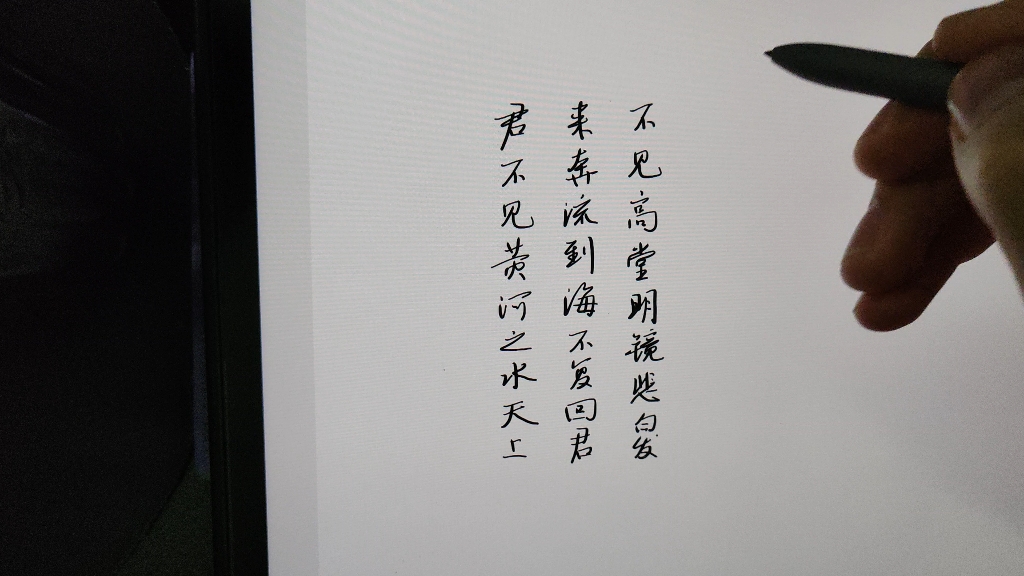 君不见黄河之水天上
来奔流到海不复回君
不见高堂明镜悲白发